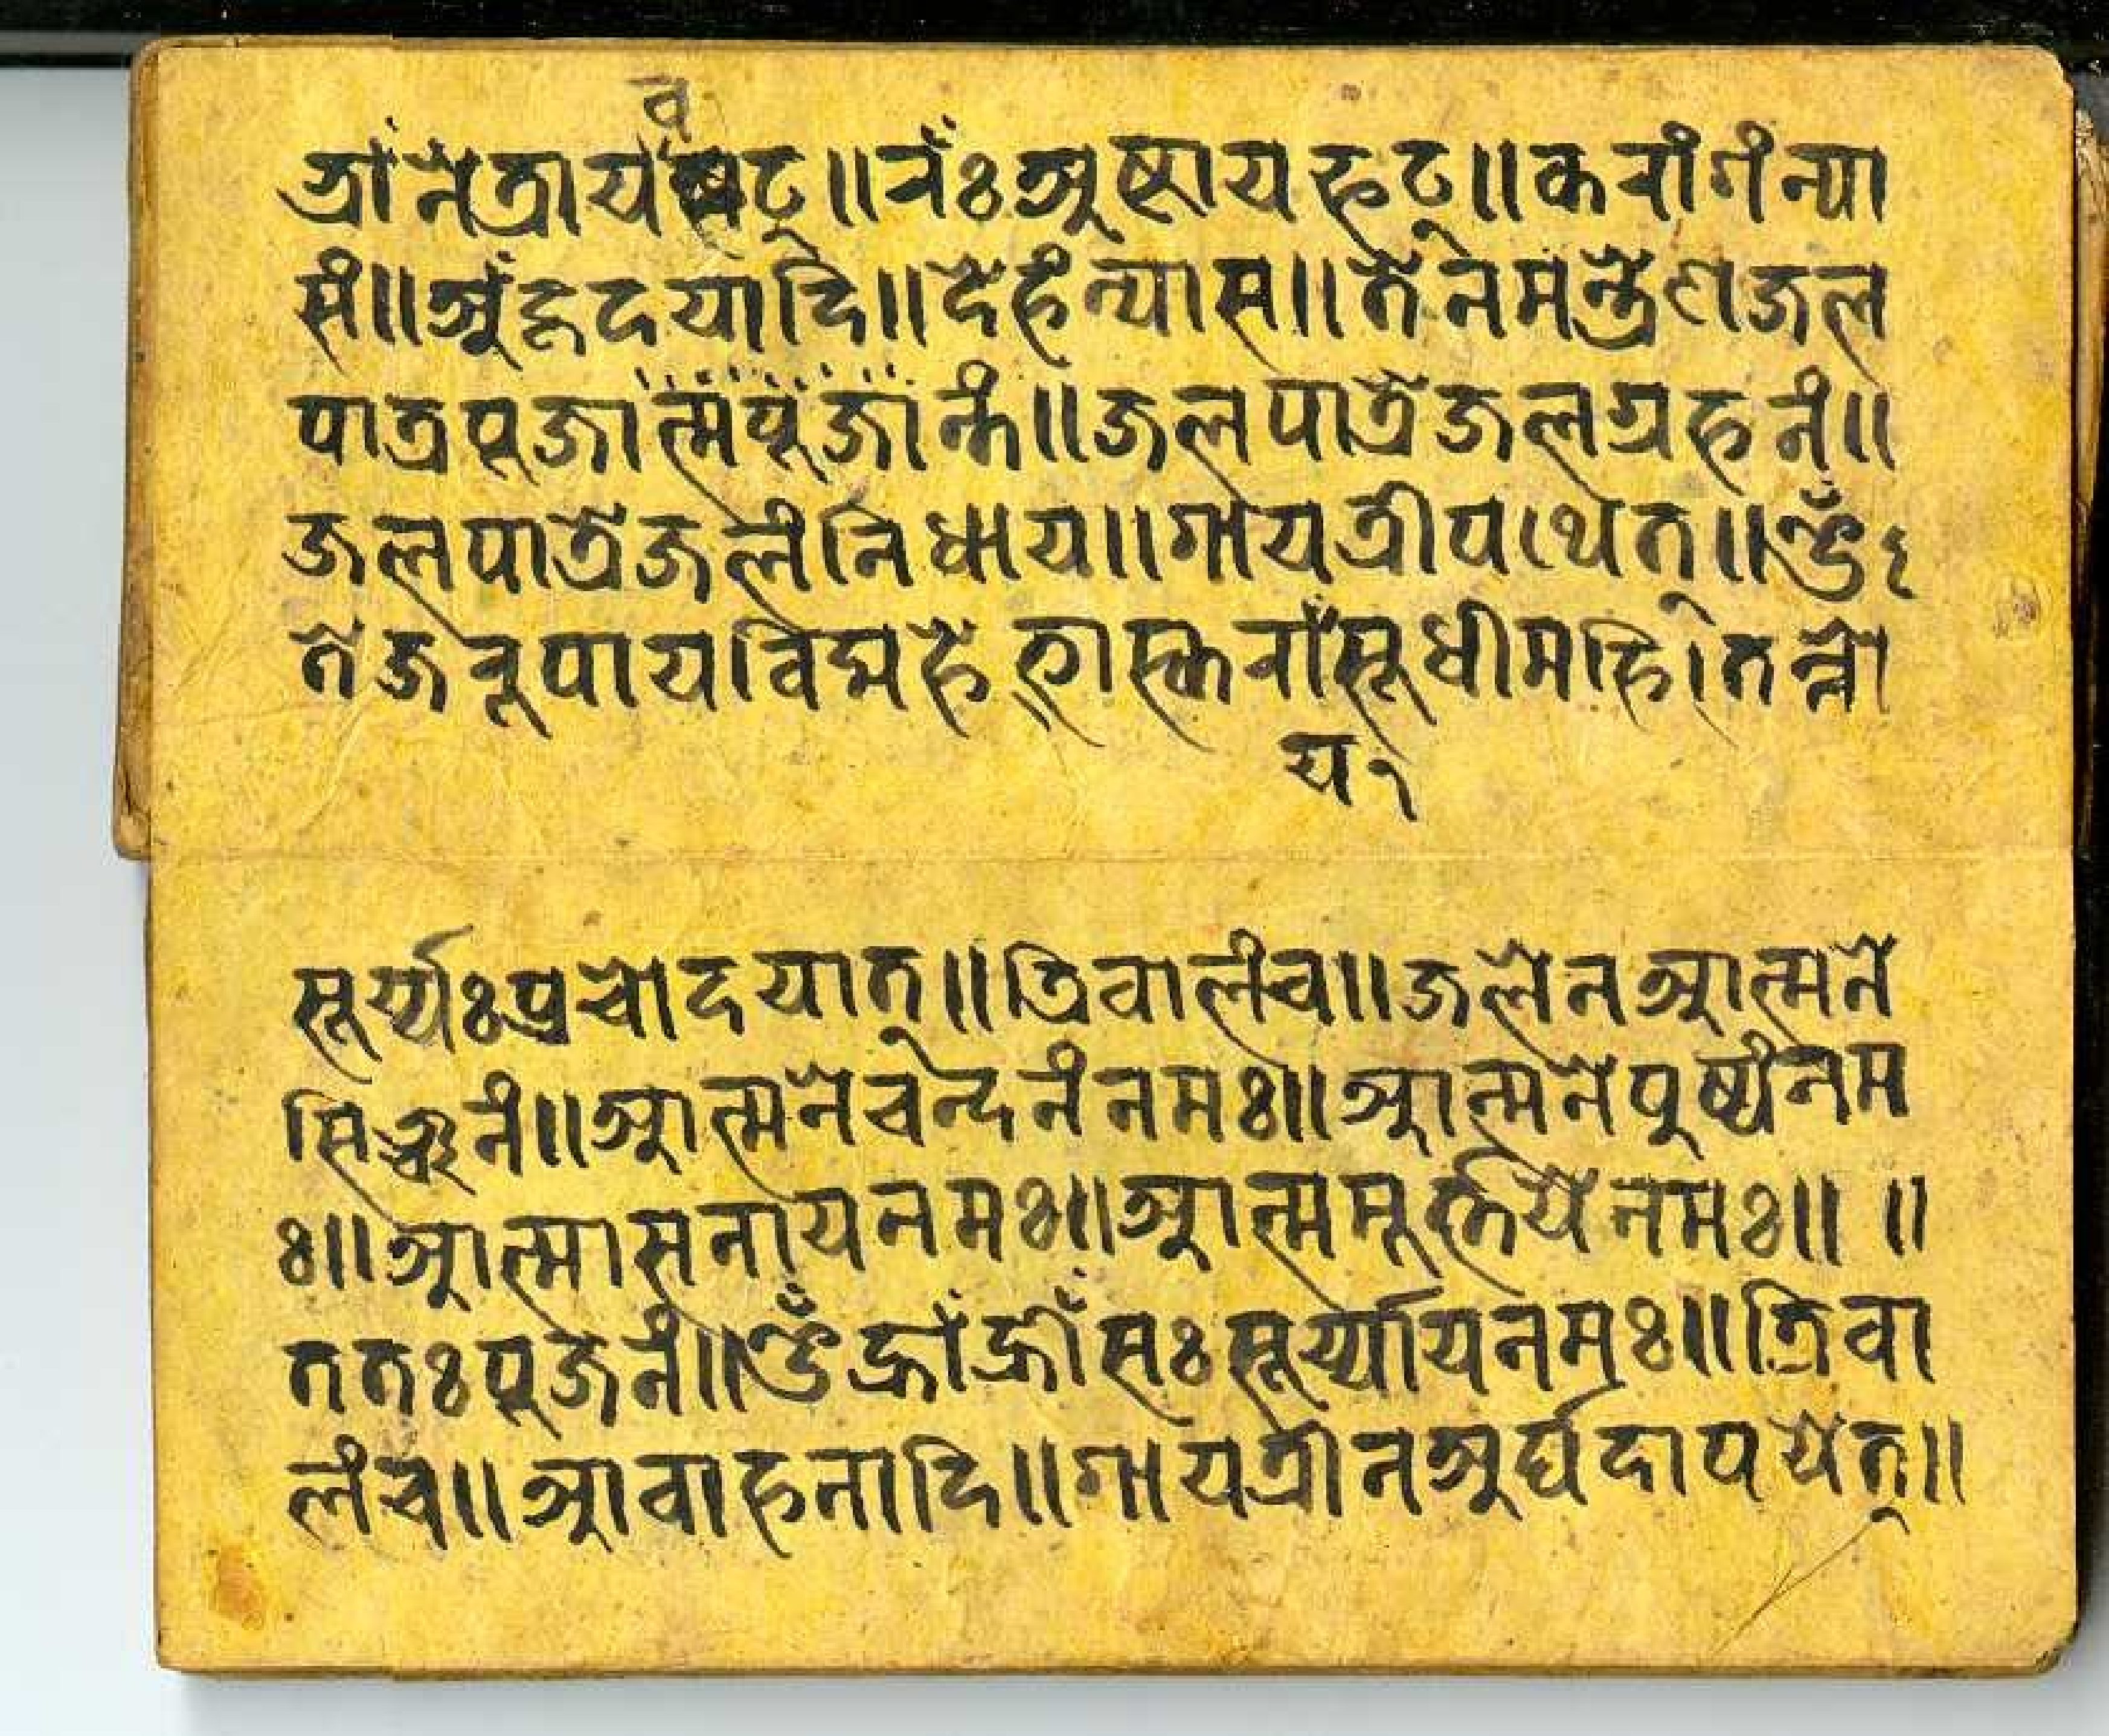 त्रां नेत्राय वषट्॥ रंः अस्त्राय फट्॥ करांगंन्या
सं॥ अं हृदयादि॥ देहंन्यास॥ तेनेमन्त्रेण जल
पात्रपूजात्मपूजान्तं॥ जलपात्रे जलग्रहनं॥
जलपात्रे जलं निधाय॥ गायत्री पथेत्॥ ॐ
तेजरूपाय विद्महे भास्करा सू धीमहि। तन्नो
य १
सूर्य्यः प्रचोदयात्॥ त्रिवालंच॥ जलेन आत्मने
सिञ्चनं॥ आत्मने चन्दनं नमः॥ आत्मने पूष्पं नम
ः॥ आत्मासनाय नमः॥ आत्ममूर्त्तये नमः॥ ॥
ततः पूजनं॥ ॐ ह्रां ह्रीं सः सूर्य्याय नमः॥ त्रिवा
लंच॥ आवाहनादि॥ गायत्रीन अर्घ दापयेत्॥